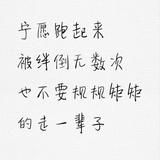 宁愿跑起来
被绊倒无数次
也不要规规矩矩
的走一辈子